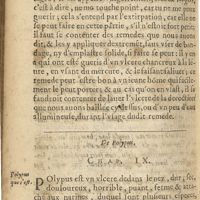 c'est à dire, ne mou touche point, car pour
guerir, cela s'entend par l'extirpation, car elle ne
se peut faire en cette partie, s'il n'est fort petit:
il faut se contenter des remedes que nous auons
dit, & les y appliquer dextrement, sans vser de bandage,
ny d'emplastre solide, il faire se peut: il y en
a qui ont esté gueris d'vn vlcere chancreux à le-
en vsant de mercure, &
remede peut-estre bon à vn ieune homme
le peut porter, & au cas qu'on en vsast, il
faudroit contenter de lauer l'vlcere de la decoction
que nous auons baillée cy dessus, ou d'vn peu d'eau
alumineuse, durant l'vsage dudit remede.
De Polypus.
CHAP. IX.
Polypus
que c'est.
Polypus est vn vlcere dedans le nez, dur,
douloureux, horrible, puant, ferme & atta-
ché aux narines, duquel sont plusieurs